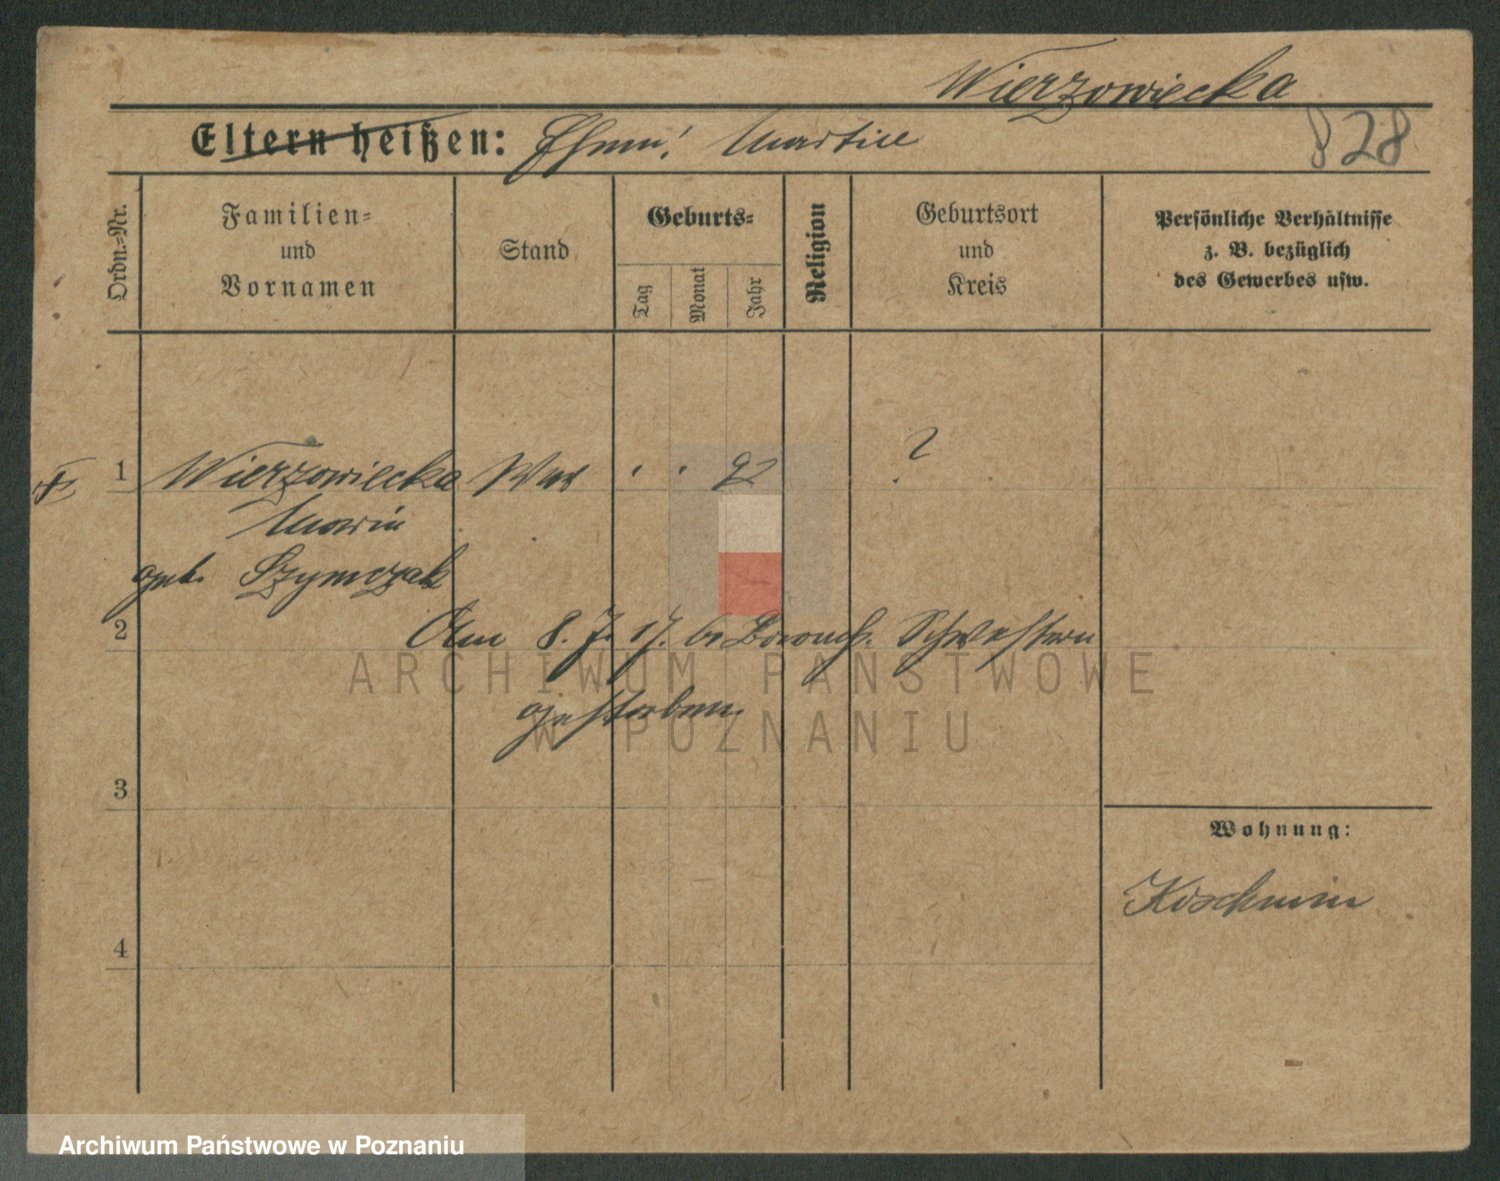 Wierzowiecka
Eltern heißen: Ehem: Martin
828
Ordn.-Nr.
Familien-
und
Vornamen
Stand
Geburts-
Tag
Monat
Jahr
Religion
Geburtsort
und
Kreis
Persönliche Verhältnisse
z. B. bezüglich
des Gewerbes usw.
1 Wierzowiecka . . 92 ?
Maria
geb. Szymczak
2 Am 8. 7. 17. Schwestern
gestorben.
3
4
Wohnung:
Koschmin
ARCHIWUM PAŃSTWOWE
W POZNANIU
Archiwum Państwowe w Poznaniu